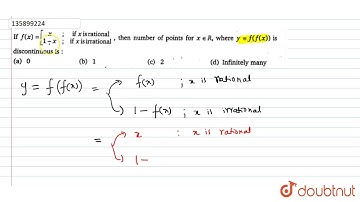 135899224
If f(x) = [ x ; if x is rational
1 - x ; if x is irrational , then number of points for x ∈ R, where y = f(f(x)) is
discontinuous is :
(a) 0 (b) 1 (c) 2 (d) Infinitely many
y = f(f(x)) = f(x) ; x is rational
1 - f(x) ; x is irrational
= x : x is rational
1 -
doubtnut